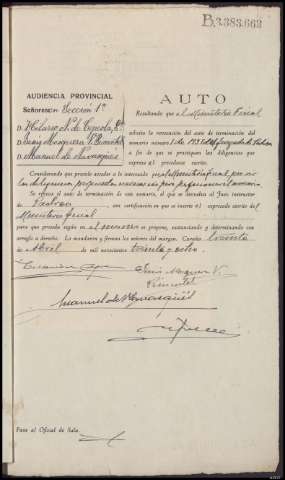 B.3.383.663
AUDIENCIA PROVINCIAL
Señores: Sección 1ª
D. Hilario N. de
D. Luis Mosquera V. Pimentel
D. Manuel de
AUTO
Resultando que el Ministerio Fiscal
solicita la revocación del auto de terminación del
sumario número 1 de 1938 del Juzgado de Padron
a fin de que se practiquen las diligencias que
expresa el precedente escrito.
Considerando que procede acceder a lo interesado por el Ministerio fiscal por ser
las diligencias
Se revoca el auto de terminación de este sumario, el que se devuelva al Juez instructor
de Padron, con certificación en que se inserte el expresado escrito del
Ministerio fiscal
para que proceda según en el mismo se propone, sustanciando y determinando con
arreglo a derecho. Lo mandaron y firman los señores del margen. Coruña treinta
de Abril de mil novecientos treinta y ocho.
Luis Mosquera V.
Pimentel
Manuel de
Pase al Oficial de Sala.